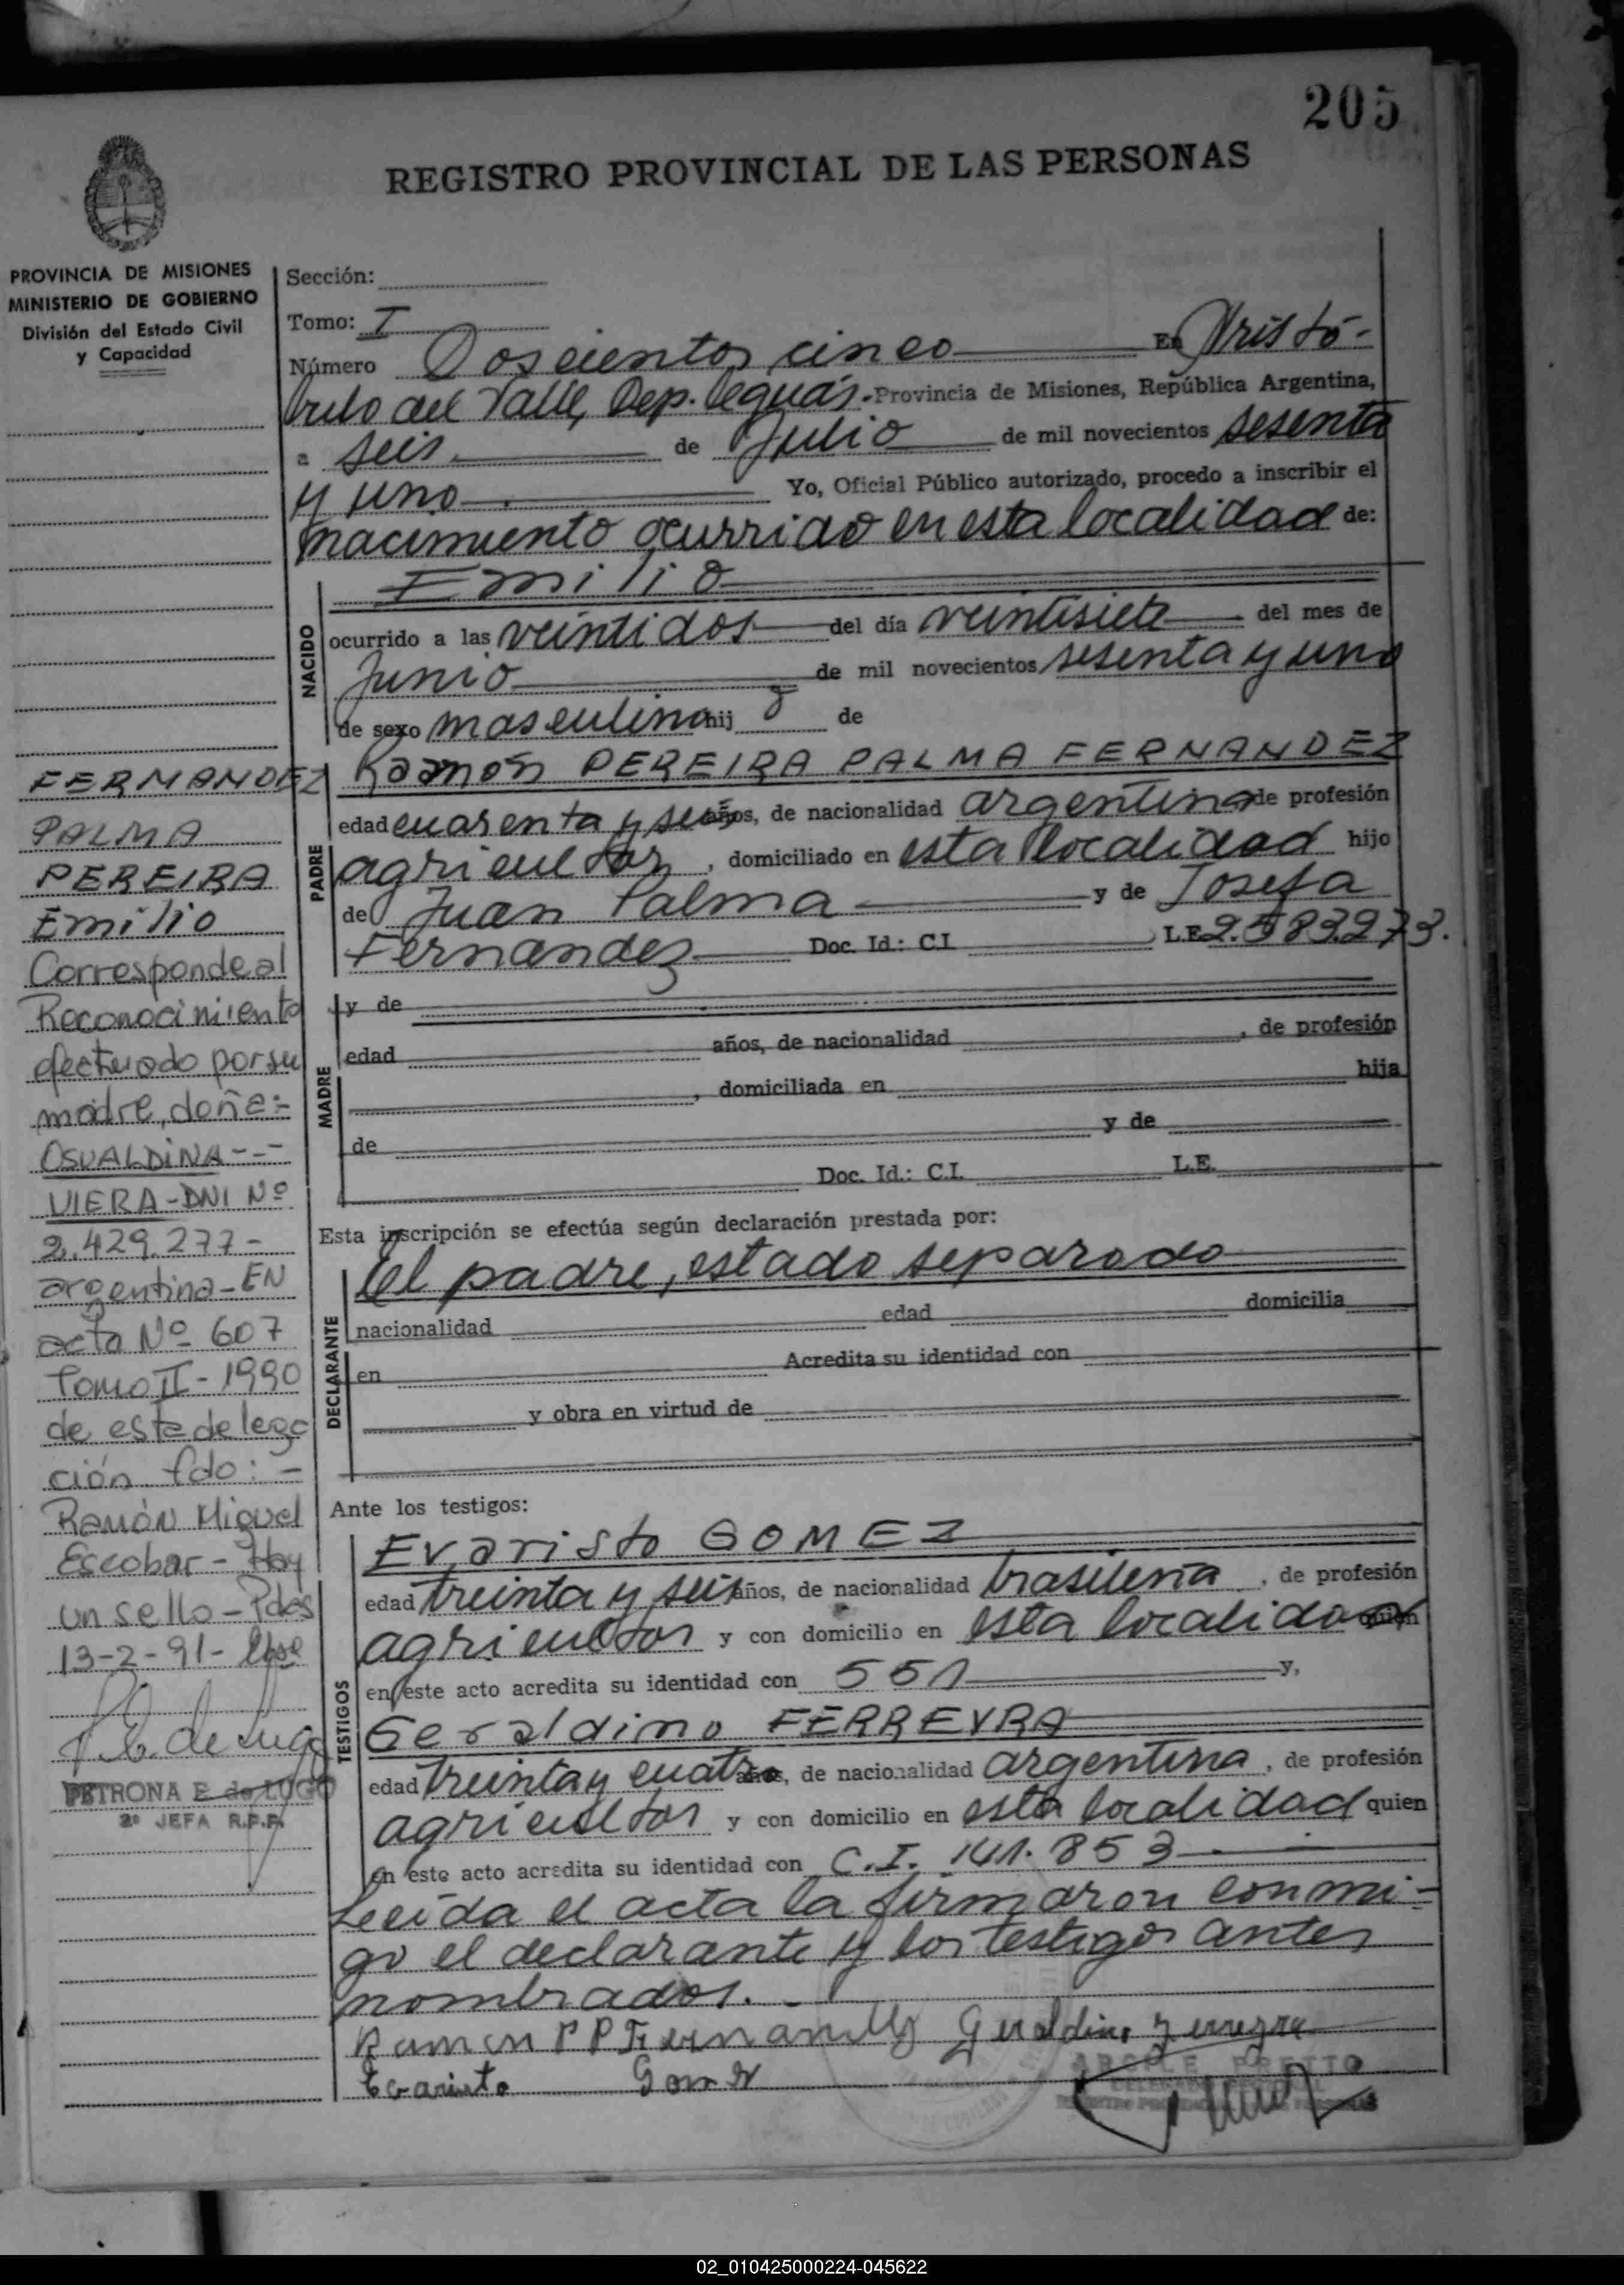 205
REGISTRO PROVINCIAL DE LAS PERSONAS
PROVINCIA DE MISIONES
MINISTERIO DE GOBIERNO
División del Estado Civil
y Capacidad
Sección:
Tomo: I
Número Doscientos cinco En Aristó-
bulo del Valle, Dep. Ceguás.-Provincia de Misiones, República Argentina,
a seis de Julio de mil novecientos sesenta
y uno Yo, Oficial Público autorizado, procedo a inscribir el
nacimiento ocurrido en esta localidad de:
NACIDO
Emilio
ocurrido a las veintidos del día veintisiete del mes de
Junio de mil novecientos sesenta y uno
de sexo masculino hij o de
PADRE
Ramón PEREIRA PALMA FERNANDEZ
edad cuarenta y seis años, de nacionalidad argentina de profesión
agricultor, domiciliado en esta localidad hijo
de Juan Palma y de Josefa
Fernandez Doc. Id.: C.I. L.E. 2.583.273.
MADRE
y de
edad años, de nacionalidad , de profesión
, domiciliada en hija
de y de
Doc. Id.: C.I. L.E.
Esta inscripción se efectúa según declaración prestada por:
DECLARANTE
El padre, estado separado
nacionalidad edad domicilia
en Acredita su identidad con
y obra en virtud de
Ante los testigos:
TESTIGOS
Evaristo GOMEZ
edad treinta y seis años, de nacionalidad brasileña, de profesión
agricultor y con domicilio en esta localidad quien
en este acto acredita su identidad con 551 y,
Geraldino FERREYRA
edad treinta y cuatro años, de nacionalidad argentina, de profesión
agricultor y con domicilio en esta localidad quien
en este acto acredita su identidad con C.I. 141.853
Leída el acta la firmaron conmi-
go el declarante y los testigos antes
nombrados.-
Ramon P P Fernandez Geraldino Ferreyra
Evaristo Gomez
ARGELE PRETTO
FERNANDEZ
PALMA
PEREIRA
Emilio
Corresponde al
Reconocimiento
efectuado por su
madre, doña:-
OSVALDINA---
VIERA-DNI Nº
2.429.277-
argentina-EN
acta Nº 607
Tomo II-1990
de esta delega
ción fdo:-
Ramón Miguel
Escobar-Hay
un sello-Pdas
13-2-91-
P.E. de Lugo
PETRONA E. de LUGO
2º JEFA R.P.P.
02_010425000224-045622